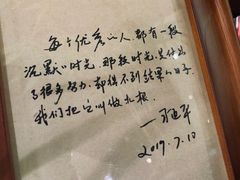 每个优秀的人,都有一段
沉默的时光,那段时光,是付出
了很多努力,却得不到结果的日子,
我们把它叫做扎根。
2019.7.10